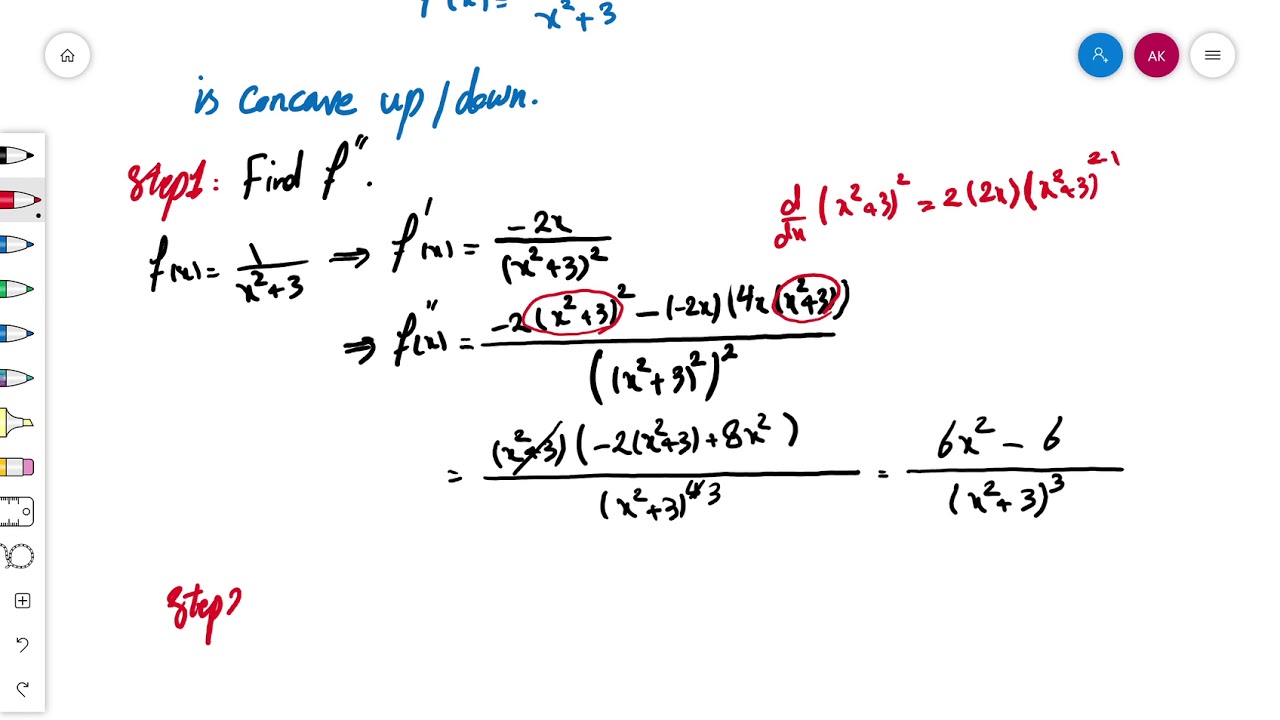 f(x)= x²+3
AK
is concave up/down.
Step1: Find f''.
d/dx (x²+3)² = 2(2x)(x²+3)²⁻¹
f(x)= 1/(x²+3) ⇒ f'(x) = -2x/(x²+3)²
⇒ f''(x) = (-2(x²+3)² - (-2x)(4x(x²+3)))/((x²+3)²)²
= (x²+3)(-2(x²+3)+8x²)/(x²+3)⁴ 3 = (6x² - 6)/(x²+3)³
Step2